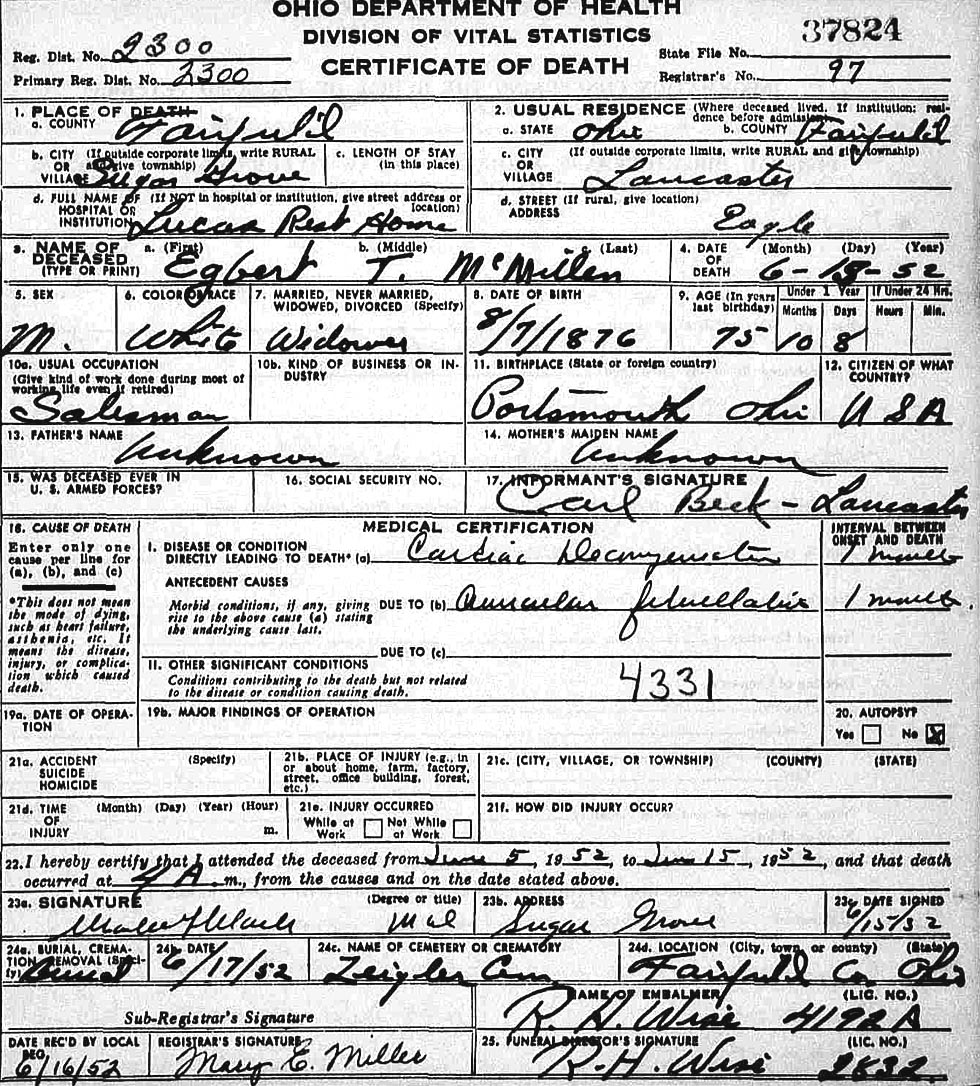 OHIO DEPARTMENT OF HEALTH
DIVISION OF VITAL STATISTICS
CERTIFICATE OF DEATH
37824
Reg. Dist. No. 2300
Primary Reg. Dist. No. 2300
State File No.
Registrar's No. 97
1. PLACE OF DEATH
a. COUNTY Fairfield
b. CITY (If outside corporate limits, write RURAL
OR and give township)
VILLAGE Sugar Grove
c. LENGTH OF STAY
(in this place)
d. FULL NAME OF (If NOT in hospital or institution, give street address or
HOSPITAL OR location)
INSTITUTION Lucas Rest Home
2. USUAL RESIDENCE (Where deceased lived. If institution: resi-
dence before admission)
a. STATE Ohio b. COUNTY Fairfield
c. CITY (If outside corporate limits, write RURAL and give township)
OR
VILLAGE Lancaster
d. STREET (If rural, give location)
ADDRESS Eagle
3. NAME OF DECEASED (TYPE OR PRINT)
a. (First) b. (Middle) c. (Last)
Egbert T. McMillen
4. DATE OF DEATH (Month) (Day) (Year)
6-15-52
5. SEX
M.
6. COLOR OR RACE
White
7. MARRIED, NEVER MARRIED,
WIDOWED, DIVORCED (Specify)
Widower
8. DATE OF BIRTH
8/7/1876
9. AGE (In years
last birthday)
75
Under 1 Year
Months Days
10 8
If Under 24 Hrs.
Hours Min.
10a. USUAL OCCUPATION
(Give kind of work done during most of
working life even if retired)
Salesman
10b. KIND OF BUSINESS OR IN-
DUSTRY
11. BIRTHPLACE (State or foreign country)
Portsmouth Ohio
12. CITIZEN OF WHAT
COUNTRY?
USA
13. FATHER'S NAME
Unknown
14. MOTHER'S MAIDEN NAME
Unknown
15. WAS DECEASED EVER IN
U. S. ARMED FORCES?
16. SOCIAL SECURITY NO.
17. INFORMANT'S SIGNATURE
Carl Beck - Lancaster
18. CAUSE OF DEATH
Enter only one
cause per line for
(a), (b), and (c)
*This does not mean
the mode of dying,
such as heart failure,
asthenia, etc. It
means the disease,
injury, or complica-
tion which caused
death.
MEDICAL CERTIFICATION
INTERVAL BETWEEN
ONSET AND DEATH
I. DISEASE OR CONDITION
DIRECTLY LEADING TO DEATH* (a) Cardiac Decompensation 1 month
ANTECEDENT CAUSES
Morbid conditions, if any, giving
rise to the above cause (a) stating
the underlying cause last.
DUE TO (b) Auricular fibrillation 1 month
DUE TO (c)
II. OTHER SIGNIFICANT CONDITIONS
Conditions contributing to the death but not related
to the disease or condition causing death.
4331
19a. DATE OF OPERA-
TION
19b. MAJOR FINDINGS OF OPERATION
20. AUTOPSY?
Yes No X
21a. ACCIDENT (Specify)
SUICIDE
HOMICIDE
21b. PLACE OF INJURY (e.g., in
or about home, farm, factory,
street, office building, forest,
etc.)
21c. (CITY, VILLAGE, OR TOWNSHIP) (COUNTY) (STATE)
21d. TIME (Month) (Day) (Year) (Hour)
OF
INJURY m.
21e. INJURY OCCURRED
While at Work Not While at Work
21f. HOW DID INJURY OCCUR?
22. I hereby certify that I attended the deceased from June 5, 1952, to June 15, 1952, and that death
occurred at 4 A. m., from the causes and on the date stated above.
23a. SIGNATURE (Degree or title)
23b. ADDRESS
Sugar Grove
23c. DATE SIGNED
6/15/52
24a. BURIAL, CREMA-
TION, REMOVAL (Speci-
fy) Burial
24b. DATE
6/17/52
24c. NAME OF CEMETERY OR CREMATORY
Zeigler Cem
24d. LOCATION (City, town, or county) (State)
Fairfield Co Ohio
Sub-Registrar's Signature
NAME OF EMBALMER (LIC. NO.)
R. H. Wise 4192A
DATE REC'D BY LOCAL
REG.
6/16/52
REGISTRAR'S SIGNATURE
Mary E. Miller
25. FUNERAL DIRECTOR'S SIGNATURE (LIC. NO.)
R. H. Wise 2832